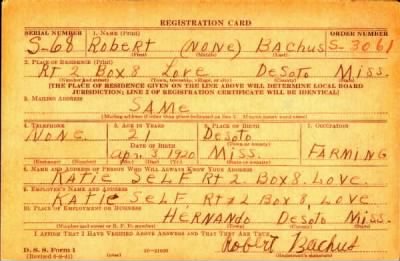 REGISTRATION CARD
SERIAL NUMBER 1. NAME (Print) ORDER NUMBER
S-68 Robert (NONE) Bachus S-3061
(First) (Middle) (Last)
2. PLACE OF RESIDENCE (Print)
Rt 2 Box 8 Love DeSoto Miss.
(Number and street) (Town, township, village, or city) (County) (State)
[THE PLACE OF RESIDENCE GIVEN ON THE LINE ABOVE WILL DETERMINE LOCAL BOARD
JURISDICTION; LINE 2 OF REGISTRATION CERTIFICATE WILL BE IDENTICAL]
3. MAILING ADDRESS
SAME
[Mailing address if other than place indicated on line 2. If same insert word same]
4. TELEPHONE 5. AGE IN YEARS 6. PLACE OF BIRTH 7. OCCUPATION
NONE 21 DeSoto
DATE OF BIRTH (Town or county)
Apr 3 1920 Miss FARMING
(Exchange) (Number) (Mo.) (Day) (Yr.) (State or country)
8. NAME AND ADDRESS OF PERSON WHO WILL ALWAYS KNOW YOUR ADDRESS
KATIE SELF Rt 2 Box 8, LOVE.
9. EMPLOYER'S NAME AND ADDRESS
KATIE SELF Rt #2 BOX 8, LOVE.
10. PLACE OF EMPLOYMENT OR BUSINESS
HERNANDO DeSoto Miss.
(Number and street or R. F. D. number) (Town) (County) (State)
I AFFIRM THAT I HAVE VERIFIED ABOVE ANSWERS AND THAT THEY ARE TRUE.
Robert Bachus
D. S. S. Form 1
(Revised 6-9-41) (over) 16-21630